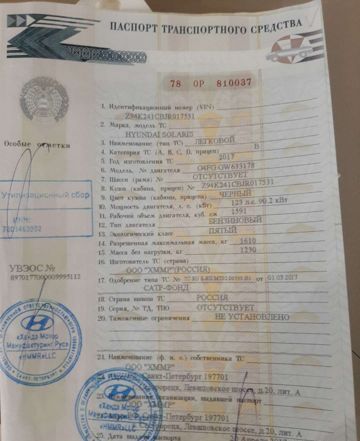 ПАСПОРТ ТРАНСПОРТНОГО СРЕДСТВА
78 ОР 810037
1. Идентификационный номер (VIN)
Z94K241CBJR017531
2. Марка, модель ТС
HYUNDAI SOLARIS
3. Наименование (тип ТС) ЛЕГКОВОЙ
4. Категория ТС (А, В, С, D, прицеп) В
5. Год изготовления ТС 2017
6. Модель, № двигателя G4FG
7. Шасси (рама) № ОТСУТСТВУЕТ
8. Кузов (кабина, прицеп) № Z94K241CBJR017531
9. Цвет кузова (кабины, прицепа) ЧЕРНЫЙ
10. Мощность двигателя, л. с. (кВт) 123 л.с. 90.2 кВт
11. Рабочий объем двигателя, куб. см 1591
12. Тип двигателя БЕНЗИНОВЫЙ
13. Экологический класс ПЯТЫЙ
14. Разрешенная максимальная масса, кг 1610
15. Масса без нагрузки, кг 1230
16. Изготовитель ТС (страна)
ООО "ХММР"(РОССИЯ)
17. Одобрение типа ТС № от 01.03.2017
САТР-ФОНД
18. Страна вывоза ТС РОССИЯ
19. Серия, № ТД, ТПО ОТСУТСТВУЕТ
20. Таможенные ограничения НЕ УСТАНОВЛЕНО
21. Наименование (ф. и. о.) собственника ТС
ООО "ХММР"
22. Санкт-Петербург 197701
Левашовское шоссе, д.20, лит. А
23. организации, выдавшей паспорт
ООО "ХММР"
24. Санкт-Петербург 197701
Левашовское шоссе, д.20, лит. А
25. Дата выдачи паспорта
Особые отметки
Утилизационный сбор
УВЭОС №
«Хендэ Мотор
Мануфактуринг Рус»
«HMMR»LLC
«Хендэ Мотор
Мануфактуринг Рус»
«HMMR»LLC